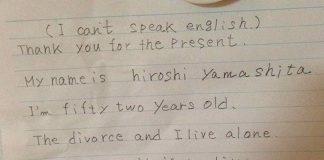 (I can't speak english.)
Thank you for the Present.
My name is hiroshi yamashita
I'm fifty two years old.
The divorce and I live alone.